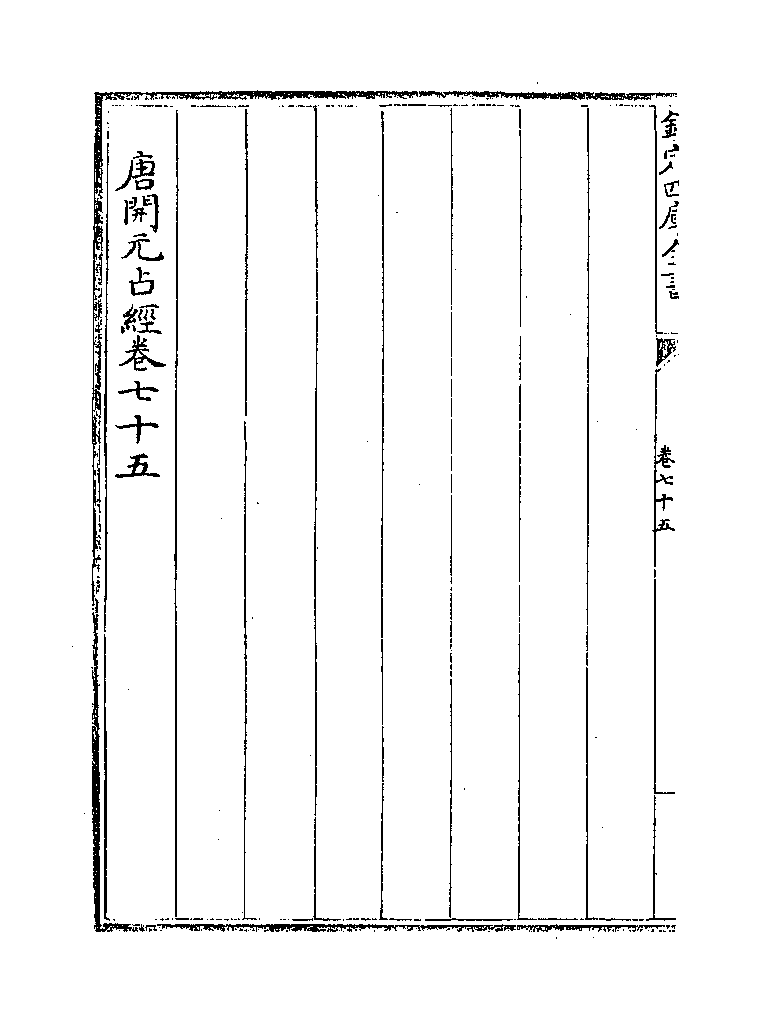 欽定四庫全書
卷七十五
唐開元占經卷七十五